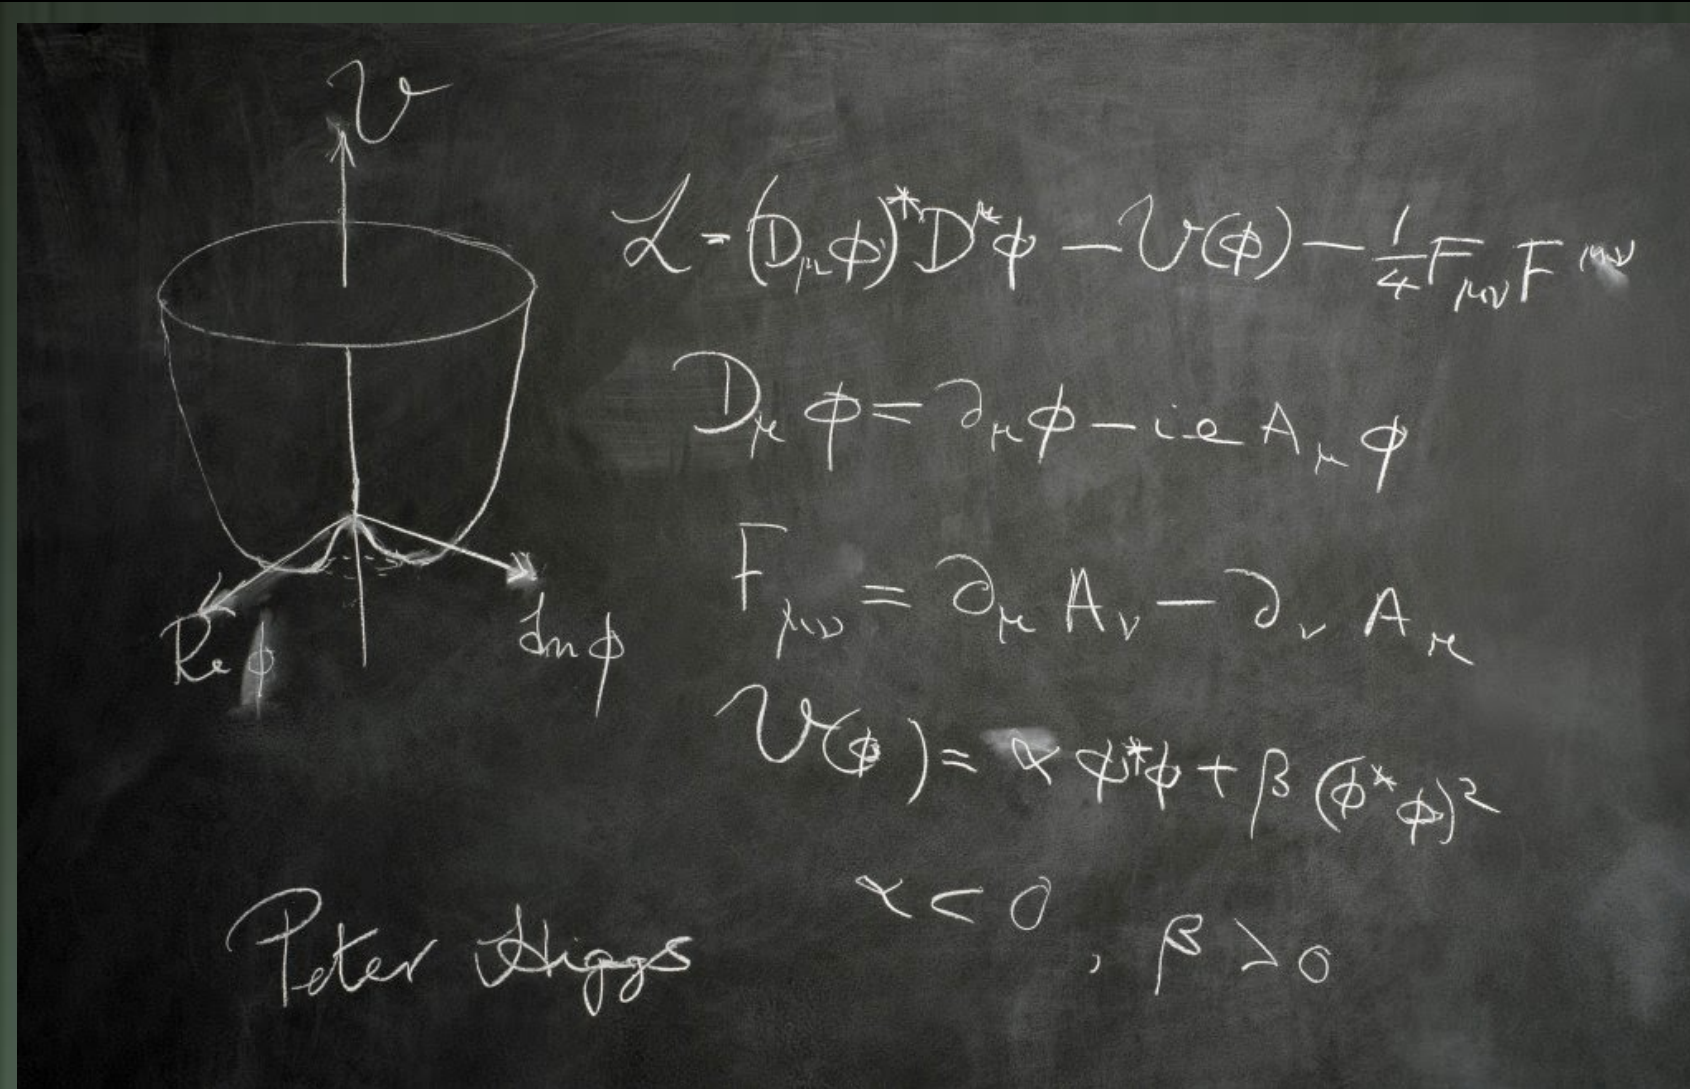 V
Re ϕ
Im ϕ
ℒ = (D_μ ϕ)* D^μ ϕ − V(ϕ) − 1/4 F_μν F^μν
D_μ ϕ = ∂_μ ϕ − i e A_μ ϕ
F_μν = ∂_μ A_ν − ∂_ν A_μ
V(ϕ) = α ϕ*ϕ + β (ϕ*ϕ)²
α < 0, β > 0
Peter Higgs